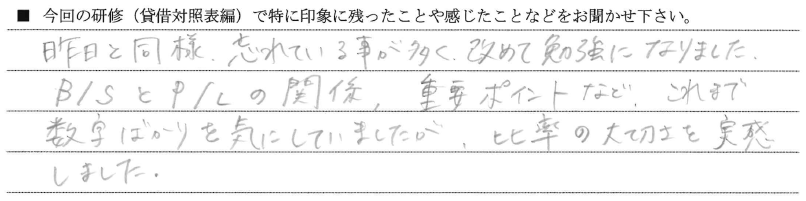 ■ 今回の研修（貸借対照表編）で特に印象に残ったことや感じたことなどをお聞かせ下さい。
昨日と同様、忘れている事が多く、改めて勉強になりました。
B/SとP/Lの関係、重要ポイントなど、これまで
数字ばかりを気にしていましたが、比率の大切さを実感
しました。